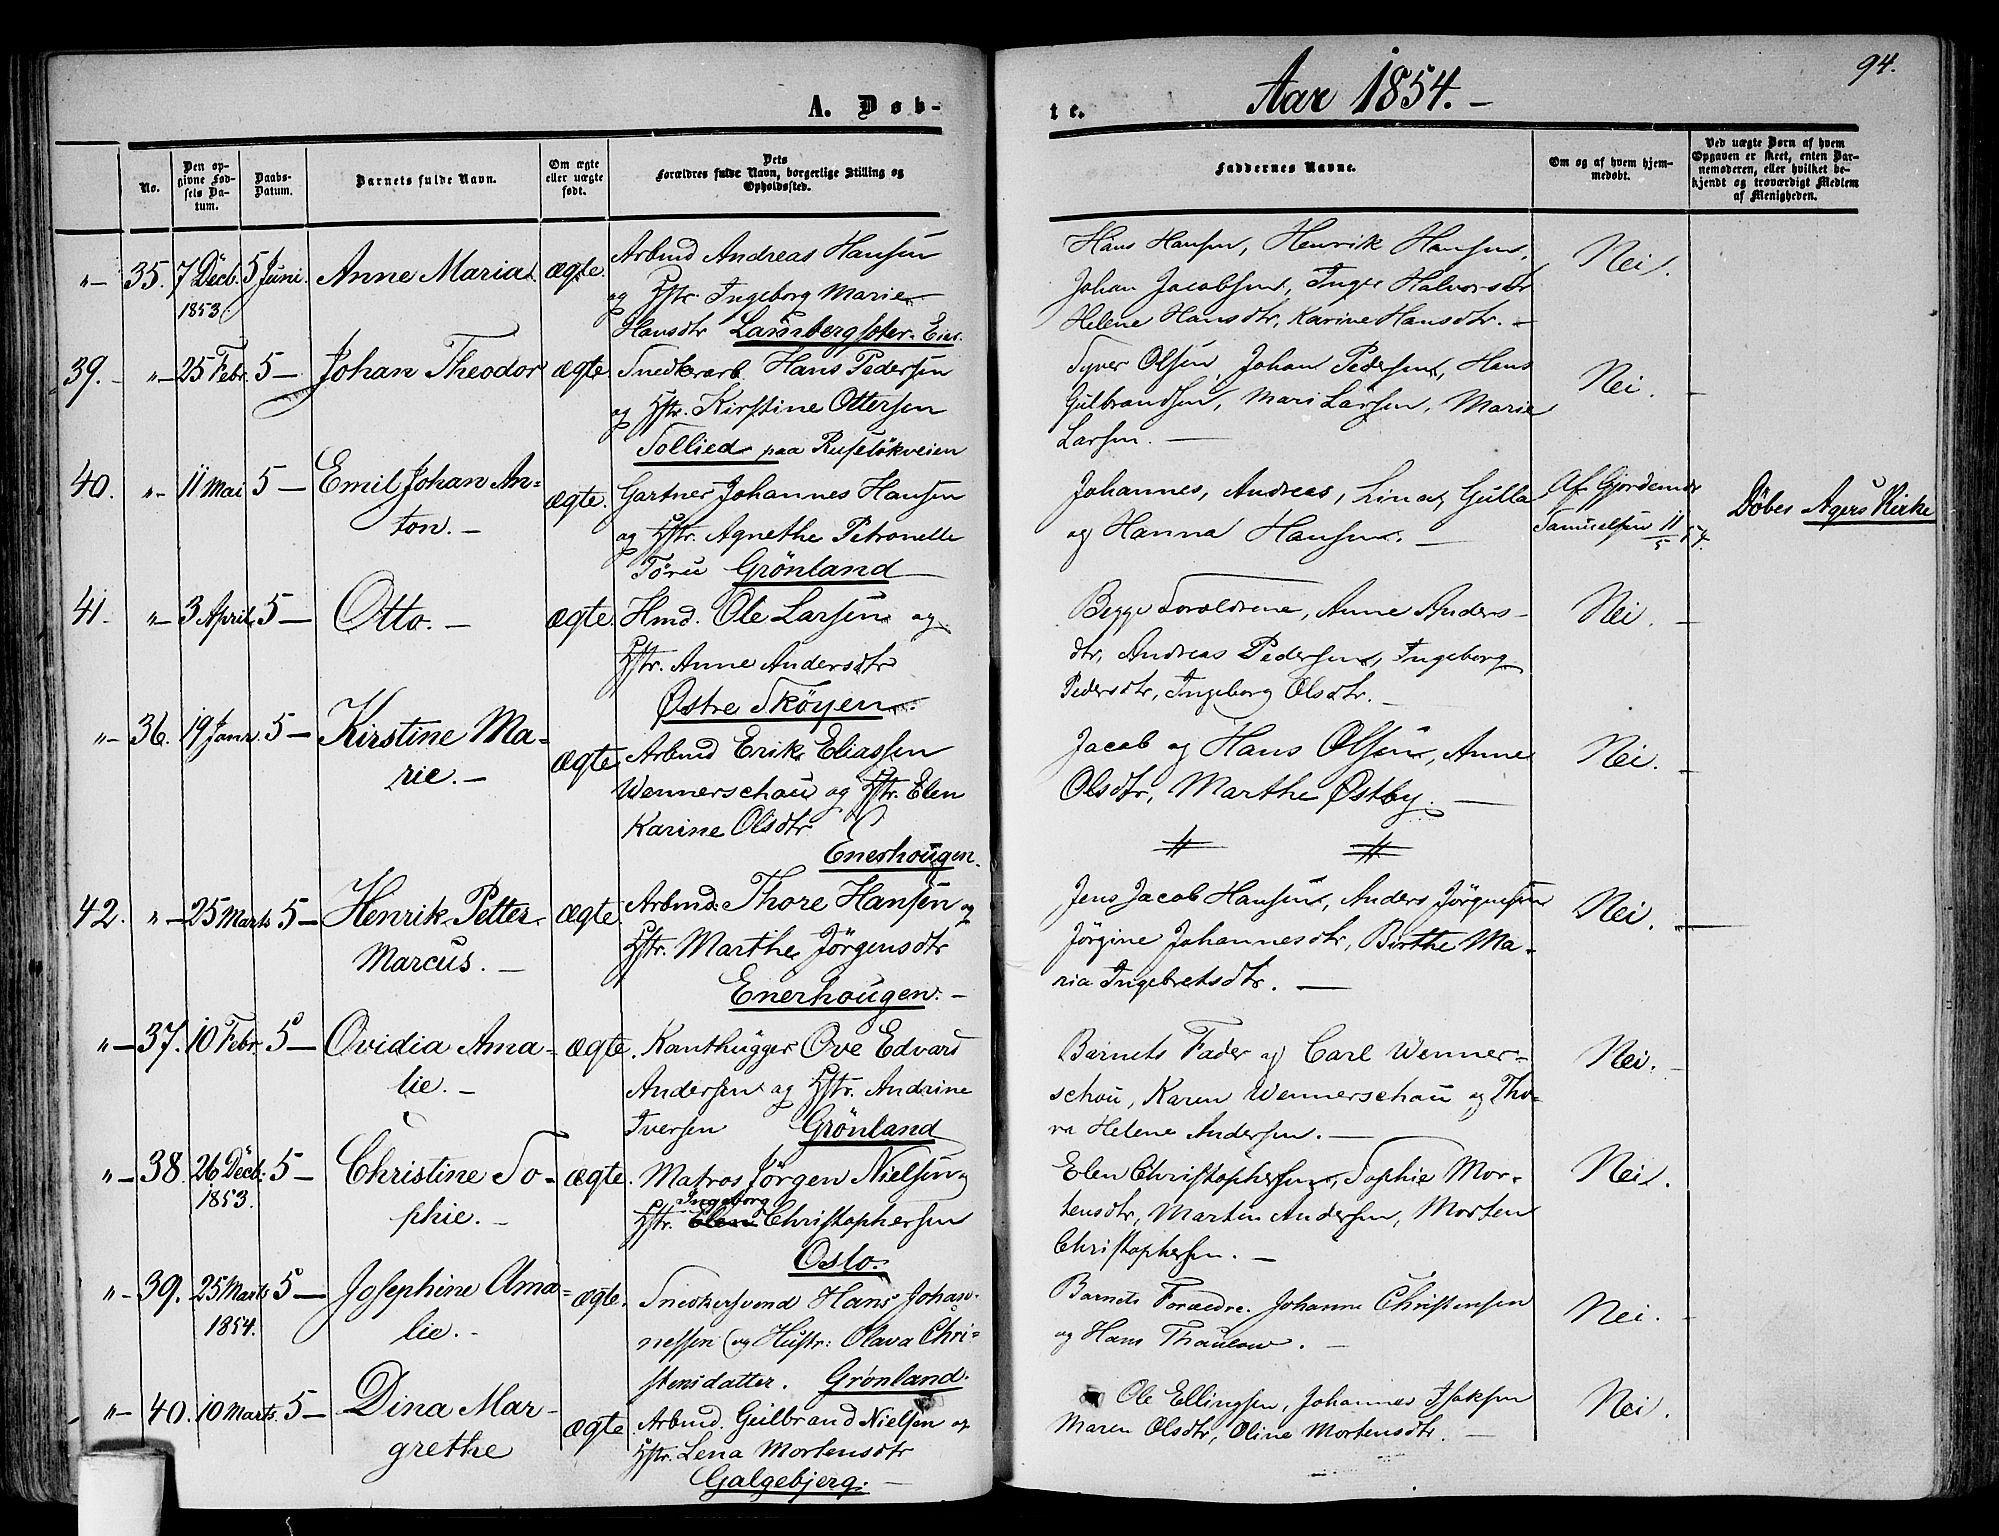 94.
A. Døb-
te.
Aar 1854.-
No.
Den opgivne Fødsels Datum.
Daabs-Datum.
Barnets fulde Navn.
Om ægte eller uægte født.
Dets Forældres fulde Navn, borgerlige Stilling og Opholdssted.
Faddernes Navne.
Om og af hvem hjemmedøbt.
Ved uægte Børn af hvem Opgaven er skeet, enten Barnemoderen, eller hvilket bekjendt og troværdigt Medlem af Menigheden.
"- 35. 7 Decb. 5 Juni. Anne Maria. ægte. Arbmd Andreas Hansen
1853. og Hstr. Ingeborg Marie
Hansdtr
Hans Hansen, Henrik Hansen, Nei.
Johan Jacobsen, Inger Halvorsdtr
Helene Hansdtr, Karine Hansdtr. -
39. "- 25 Febr. 5 - Johan Theodor ægte. Snedkerarb. Hans Pedersen
og Hstr. Kirstine Ottersen
Sollied paa Ruseløkveien
Syver Olsen, Johan Pedersen, Hans Nei. -
Gulbrandsen, Mari Larsen, Marie
Larsen. -
40. "- 11 Mai 5 - Emil Johan An- ægte. Gartner Johannes Hansen
ton. - og Hstr. Agnethe Petronelle
Grönland
Johannes, Andreas, Lina, Gulla Af Gjordemdr
og Hanna Hansen. - Samuelsen 11/5 54. Döbes Agers Kirke
41. "- 3 April. 5 - Otto. - ægte. Hmd. Ole Larsen og
Hstr. Anne Andersdtr
Østre Sköyen.
Begge Forældrene, Anne Anders- Nei. -
dtr, Andreas Pedersen, Ingeborg
Pedersdtr, Ingeborg Olsdtr. -
"- 36. 19 Janr. 5 - Kirstine Ma- ægte. Arbmd Erik Eliassen
rie. - Wennerschou og Hstr. Elen
Karine Olsdtr
Enerhougen.
Jacob og Hans Olsen, Anne Nei. -
Olsdtr, Marthe Østby. -
42. "- 25 Marts 5 - Henrik Petter ægte. Arbmd. Thore Hansen og
Marcus. - Hstr. Marthe Jörgensdtr
Enerhougen. -
Jens Jacob Hansen, Anders Jörgensen Nei. -
Jörgine Johannesdtr, Birthe Ma-
ria Ingebretsdtr. -
"- 37. 10 Febr. 5 - Ovidia Ama- ægte. Kanthugger Ove Edvard
lie. - Andersen og Hstr. Andrine
Iversen Grönland
Barnets Fader og Carl Wenner- Nei. -
schou, Karen Wennerschou og Tho-
ra Helene Andersen. -
"- 38. 26 Decb. 5 - Christine So- ægte. Matros Jörgen Nielsen og
1853. phie. - Hstr. Ingeborg Elen Christophersen
Oslo.
Elen Christophersen, Sophie Mor- Nei. -
tensdtr, Martin Andersen, Morten
Christophersen. -
"- 39. 25 Marts 5 - Josephine Ama- ægte. Snedkersvend Hans Johan-
1854. lie. - nessen og Hustr: Olava Chri-
stensdatter. Grønland.
Barnets Forædre. Johanne Christensen Nei. -
og Hans Thaulow. -
"- 40. 10 Marts. 5 - Dina Mar- ægte Arbmd. Gulbrand Nielsen og
grethe Hstr. Lena Mortensdtr
Galgebjerg. -
Ole Ellingsen, Johannes Isaksen Nei.
Maren Olsdtr, Oline Mortensdtr. -